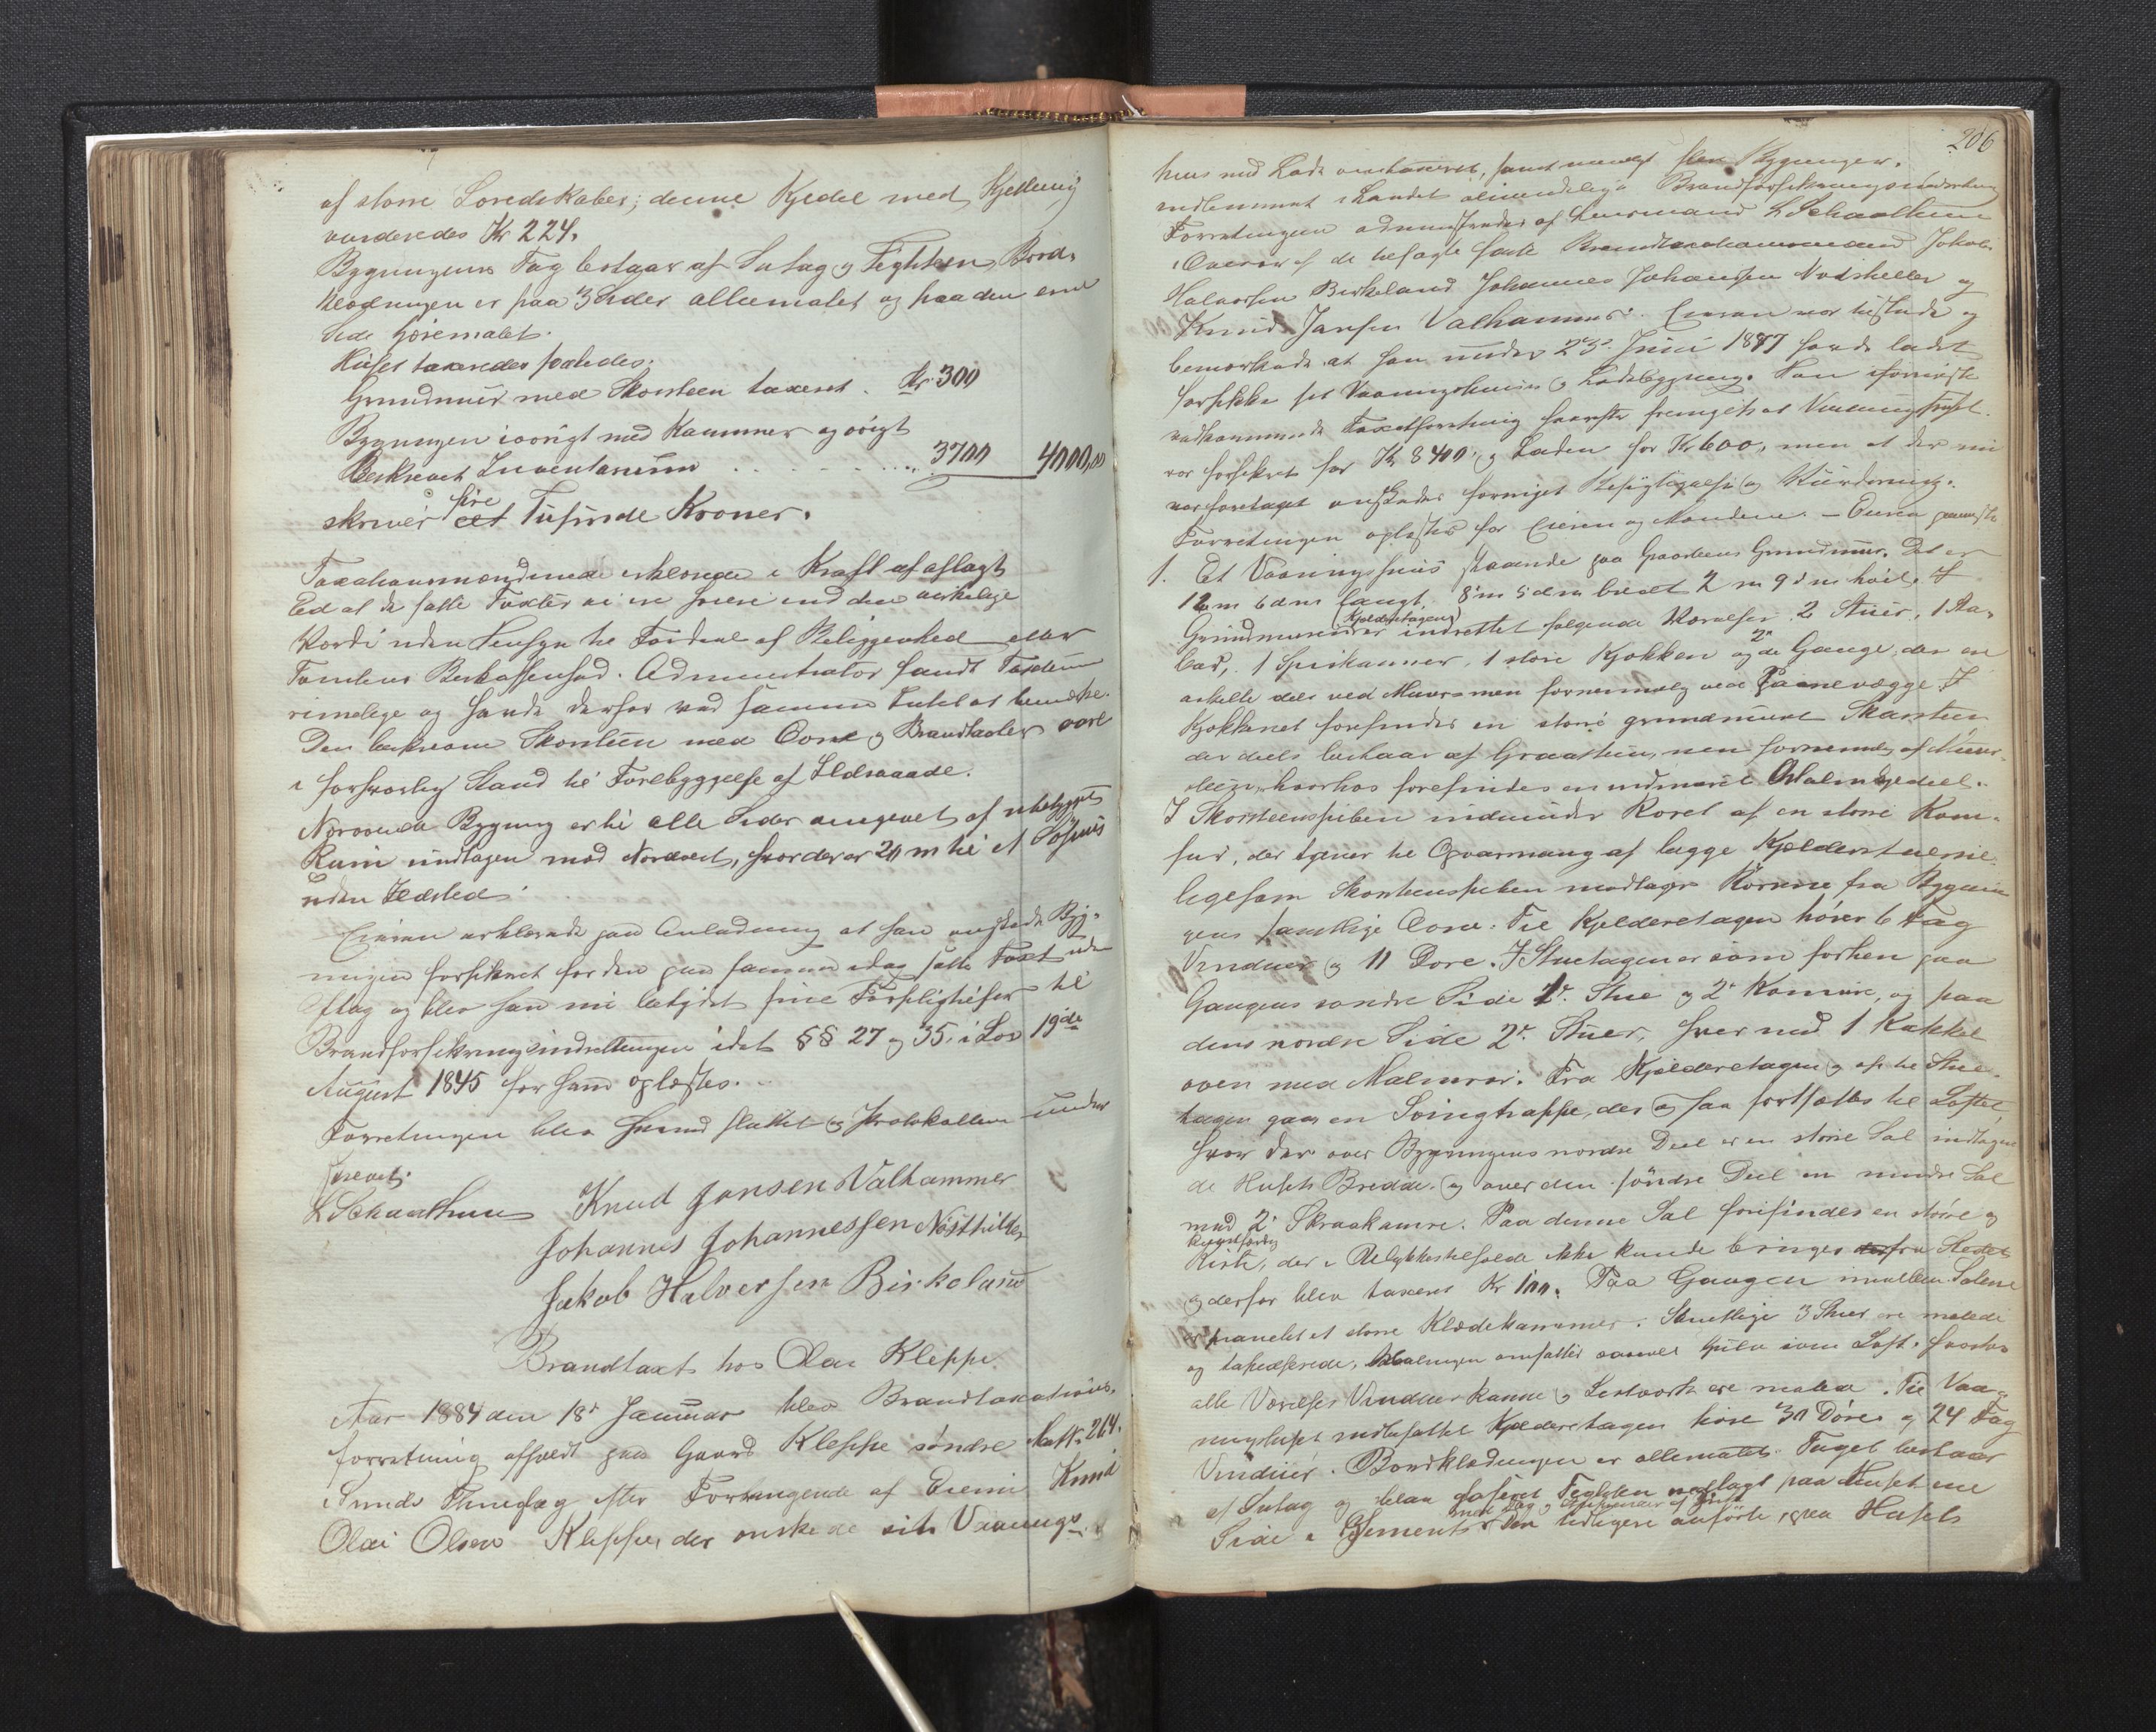 af større Soredskaber; denne Kjedel med Kjetling
vurderedes Kr 224.
Bygningens Tag bestaar af Sutag og Teglsten, Bord-
klædningen er paa 3 Sider oliemalet og paa den ene
Side farvemalet.
Huset taxeredes saaledes:
Grundmuur med Skorsteen taxeret Kr. 300
Bygningen iøvrigt med Kammer og øvrigt
Beskrevet Inventarium 3700 4000,00
skriver fire Tusinde Kroner.
Taxationsmændene erklærede i Kraft af aflagt
Ed at de satte Taxter ei ere høiere end den virkelige
Værdi uden Hensyn til Fordeel af Beliggenhed eller
Tomtens Beskaffenhed. Administrator fandt Taxten
rimelige og havde derfor ved samme Intet at bemærke.
Den beskrevne Skorsteen med Ovne og Brandtavler vare
i forsvarlig Stand til Forebyggelse af Ildsvaade.
Nærværende Bygning er til alle Sider omgivet af ubebygget
Rum undtagen mod Nordvest, hvor der er 20 m til et Søhuus
uden Ildsted.
Eieren erklærede paa Anledning at han ønskede Byg-
ningen forsikret for den paa samme idag satte Taxt uden
Aftag og blev han nu betydet sine Forpligtelser til
Brandforsikringsindretningen idet §§ 27 og 35 i Lov 19de
August 1845 for ham oplæstes.
Forretningen blev hermed sluttet og Protokollen under
skrevet.
L Schaathun Knud Jansen Valhammer
Johannes Johannessen Nøsthilder
Jakob Halversen Birkeland
Brandtaxt hos Olai Kleppe.
Aar 1884 den 18de Januar blev Brandtaxations-
forretning afholdt paa Gaard Kleppe søndre Matr. 264.
i Sunds Thinglag efter Forlangende af Eieren Knud
Olai Olsen Kleppe, der ønskede sit Vaanings-
206
huus med Lade omtaxeret, samt muligt flere Bygninger
indlemmet i Landets almindelige Brandforsikringsindretning
Forretningen administreredes af Lensmand L Schaathun
i Overvær af de befaste faste Brandtaxationsmænd Jakob
Halvorsen Birkeland Johannes Johansen Nøstheller og
Knud Jansen Valhammer. Eieren var tilstede og
bemærkede at han under 23de Juni 1887 havde ladet
forsikke sit Vaaningshuus og Ladebygning. Han foreviste
vedkommende Taxtforretning hvorefter fremgik at Vaaningshuset
var forsikret for Kr 8400 og Laden for Kr 600, men at der nu
var foretaget fornyet Besigtigelse og Vurdering.
Forretningen oplæstes for Eieren og Mændene. — Eieren
1. Et Vaaningshuus staaende paa Gaardens Grundmuur. Det er
12 m 6 dm langt, 8 m 5 dm bredt 2 m 9 dm høit. I
Kjelderetagen
Grundmuren er indrettet følgende Værelser 2 Stuer, 1 Aa-
bad, 1 Spiskammer, 1 store Kjøkken og 2de Gange, der ere
adskilte dels ved Muur men fornemmelig ved Panelvægge. I
Kjøkkenet forefindes en større grundmuret Skorsteen
der deels bestaar af Graasteen, men fornemmelig af Muur-
steen, hvorhos forefindes en indmuret Malmkjedel.
I Skorsteenspiben indmunder Røret af en større Kom-
fur, der tjener til Opvarmning af begge Kjelderstuerne
ligesom Skorsteenspiben modtager Rørene fra Bygnin
gens samtlige Ovne. Til Kjelderetagen hører 6 Fag
Vinduer og 11 Døre. I Stuetagen er som forhen paa
Gangens søndre Side 1. Stue og 2de Kamre, og paa
dens nordre Side 2de Stuer, hver med 1 Kakkel
oven med Malmrør. Fra Kjelderetagen og op til Stue-
tagen gaar en Svingtrappe, der og saa fortsættes til Loftet,
hvor der over Bygningens nordre Deel er en større Sal indtagen
de Husets Bredde og over den søndre Deel en mindre Sal
med 2de Skraakamre. Paa denne Sal forefindes en større og
Kiste, der i Ulykkestilfælde ikke kunde bringes fra Stedet
og derfor blev taxeret Kr 100. Paa Gangen imellem Salene
er panelet et større Klædekammer. Samtlige 3 Stuer ere malede
og tapetserede, Malingen omfatter saavel Gulv som Loft, hvorhos
alle Værelsers Vindueskarme og Listværk ere malede. Til Vaa-
ningshuset indbefattet Kjelderetagen høre 30 Døre og 24 Fag
Vinduer. Bordklædningen er oliemalet. Taget bestaar
af Sutag og blaa glaseret Teglsten nedlagt paa Huset ene
Side i Cement. Den tidligere anførte, paa Husets